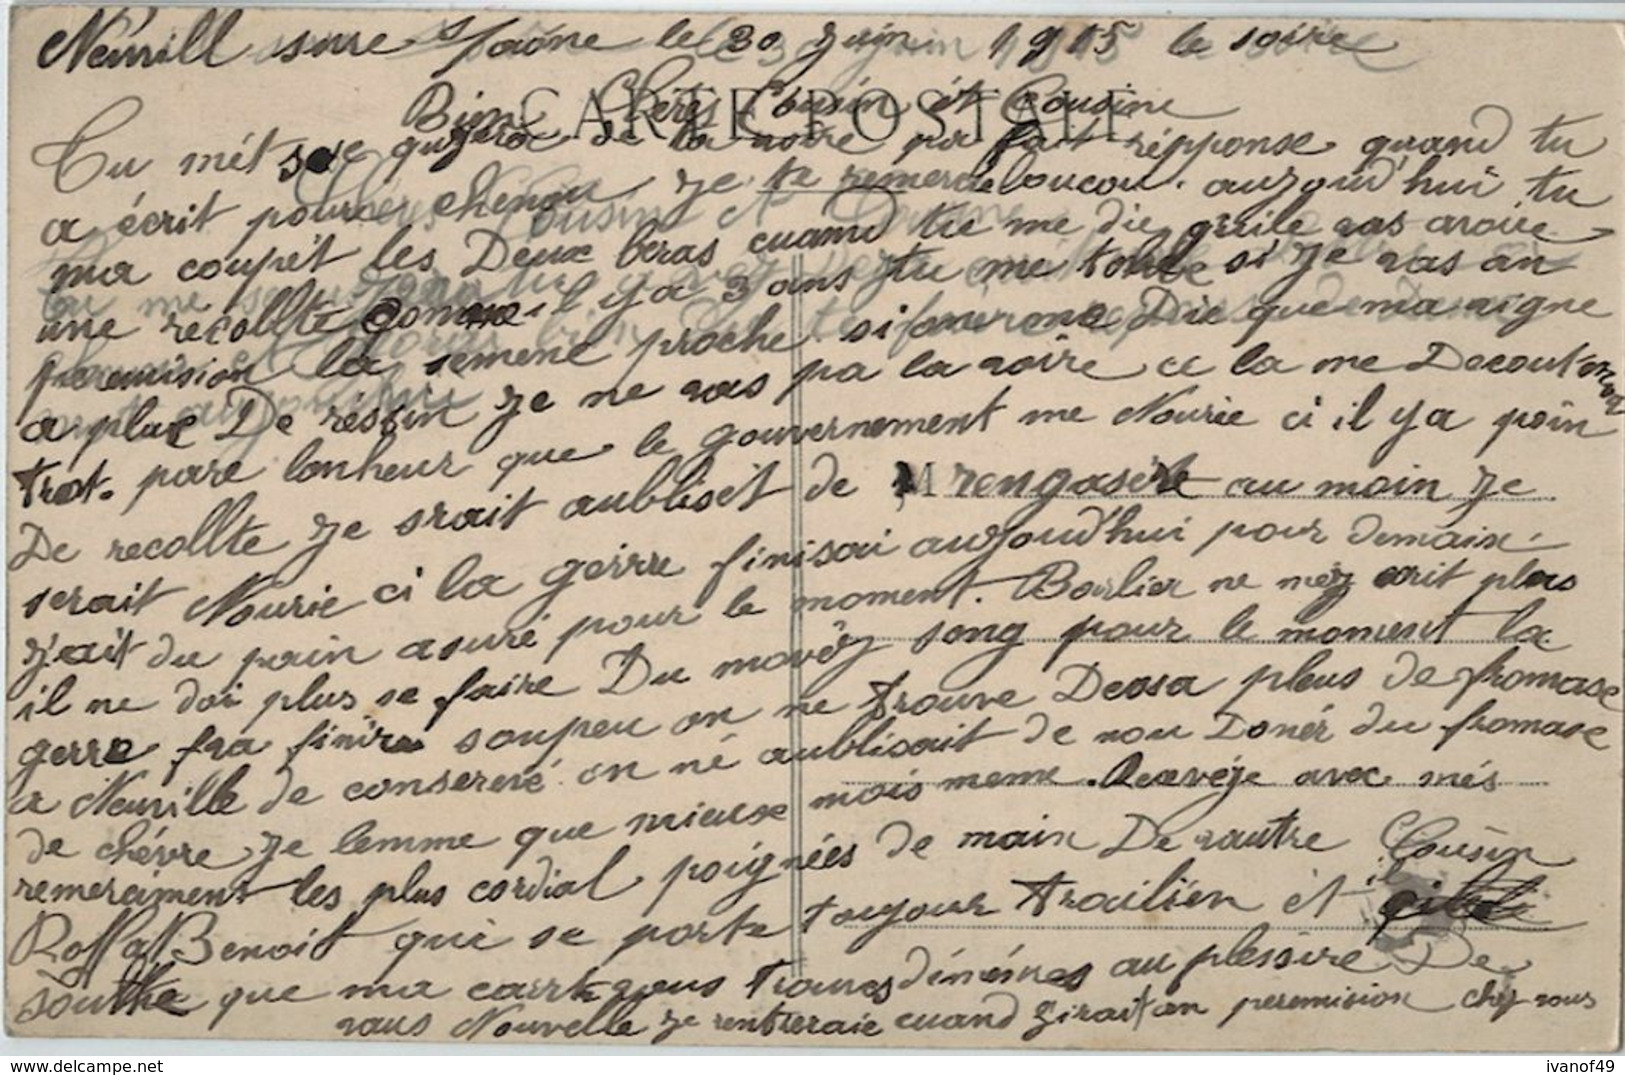 Neuvill sure Saône le 30 Juin 1915 le soire
CARTE POSTALE
Bien Chérs Cousin ét Cousine
Tu mét de la notre pa fait répponse quand tu
a écrit poure chenou je te remerci aujourd'hui tu
ma coupét les Deux beras cuand tu me die quile vas avoire
une récollte comme il y a 3 ans tu me si je vas an
peremision la semene proche si me Die que ma vigne
a plus De réssin je ne vas pa la voire ce la me Decouteras
trot. pare lonheur que le gouvernement me Nourie ci il y a poin
De recollte je srait aublisét de M rengasére au moin je
serait Nourie ci la gerre finisai aujourd'hui pour demain
j'ait du pain asuré pour le moment. Borlier ne méz crit plus
il ne doi plus se faire Du movéz song pour le moment la
gerre fra finire soupeu on ne trouve Desa plus de fromase
a Neuville de conservé on né aublisait de nou Donér du fromase
de chévre je lemme que mieuse mois meme. Recevéje avec més
remerciment les plus cordial poignées de main De vautre Cousin
Roffat Benoit qui se porte toujour ét
Souhte que ma carte vous trouves démémes au plessire De
vaus Nouvelle je rentreraie cuand girait an peremision chez vous
ivanof49